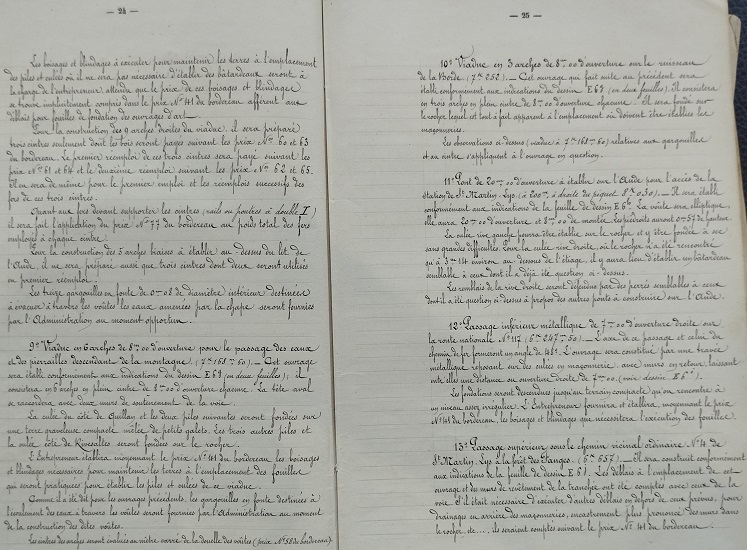 — 24 —
Les boisages et blindages à exécuter pour maintenir les terres à l'emplacement
des piles et culées où il ne sera pas nécessaire d'établir des bâtardeaux seront à
la charge de l'entrepreneur, attendu que le prix de ces boisages et blindages
se trouve implicitement compris dans le prix N° 41 du bordereau afférent aux
déblais pour fouilles de fondation des ouvrages d'art.
Pour la construction des 9 arches droites du viaduc, il sera préparé
trois cintres seulement dont les bois seront payés suivant les prix N°s 60 et 63
du bordereau. Le premier remploi de ces trois cintres sera payé suivant les
prix N°s 61 et 64 et le deuxième remploi suivant les prix N°s 62 et 65.
Il en sera de même pour le premier emploi et les remplois successifs des
fers de ces trois cintres.
Quant aux fers devant supporter les cintres (rails ou poutres à double I)
il sera fait l'application du prix N° 77 du bordereau au poids total des fers
employés à chaque cintre.
Pour la construction des 5 arches biaises à établir au dessus du lit de
l'Aude, il ne sera préparé aussi que trois cintres dont deux seront utilisés
en premier remploi.
Les treize gargouilles en fonte de 0m08 de diamètre intérieur destinées
à évacuer à travers les voûtes les eaux amenées par la chape seront fournies
par l'Administration au moment opportun.
9° Viaduc en 6 arches de 8m00 d'ouverture pour le passage des eaux
et pierrailles descendant de la montagne (7k168m60). — Cet ouvrage
sera établi conformément aux indications du dessin E 68 (en deux feuilles); il
consistera en 6 arches en plein cintre de 8m00 d'ouverture chacune. La tête aval
se raccordera avec deux murs de soutènement de la voie.
La culée du côté de Quillan et les deux piles suivantes seront fondées sur
une terre graveleuse compacte mêlée de petits galets. Les trois autres piles et
la culée côté de Rivesaltes seront fondées sur le rocher.
L'Entrepreneur établira moyennant le prix N° 41 du bordereau, les boisages
et blindages nécessaires pour maintenir les terres à l'emplacement des fouilles
qui seront pratiquées pour établir les piles et culées de ce viaduc.
Comme il a été dit pour les ouvrages précédents, les gargouilles en fonte destinées à
l'écoulement des eaux à travers les voûtes seront fournies par l'Administration au moment
de la construction des dites voûtes.
Les cintres des arches seront évalués au mètre carré de la douelle des voûtes (prix N° 58 du bordereau).
— 25 —
10° Viaduc en 3 arches de 8m00 d'ouverture sur le ruisseau
de la Borde (7k252). — Cet ouvrage qui fait suite au précédent sera
établi conformément aux indications du dessin E 69 (en deux feuilles). Il consistera
en trois arches en plein cintre de 8m00 d'ouverture chacune. Il sera fondé sur
le rocher lequel est tout à fait apparent à l'emplacement où doivent être établies les
maçonneries.
Les observations ci-dessus (viaduc à 7k168m60) relatives aux gargouilles
et au cintre s'appliquent à l'ouvrage en question.
11° Pont de 20m00 d'ouverture à établir sur l'Aude pour l'accès de la
station de St Martin-Lys (à 200m à droite du piquet 8k030). — Il sera établi
conformément aux indications de la feuille de dessin E 6. La voûte sera elliptique,
elle aura 20m00 d'ouverture et 8m00 de montée. Les piédroits auront 0m57 de hauteur.
La culée rive gauche pourra être établie sur le rocher et y être fondée à sec
sans grandes difficultés. Pour la culée rive droite, où le rocher n'a été rencontré
qu'à 3m 14 environ au dessous de l'étiage, il y aura lieu d'établir un bâtardeau
semblable à ceux dont il a déjà été question ci-dessus.
Les remblais de la rive droite seront défendus par des perrés semblables à ceux
dont il a été question ci-dessus à propos des autres ponts à construire sur l'Aude.
12° Passage inférieur métallique de 7m00 d'ouverture droite sur
la route nationale N° 117 (6k247m50). — L'axe de ce passage et celui du
chemin de fer forment un angle de 48g. L'ouvrage sera constitué par une travée
métallique reposant sur des culées en maçonnerie, avec murs en retour, laissant
entre elles une distance ou ouverture droite de 7m00 (voir dessin E 6).
Les fondations seront descendues jusqu'au terrain compact qu'on rencontre à
un niveau assez irrégulier. L'Entrepreneur fournira et établira, moyennant le prix
N° 41 du bordereau, les boisages et blindages que nécessitera l'exécution des fouilles.
13° Passage supérieur sous le chemin vicinal ordinaire N° 4 de
St Martin-Lys à la forêt des Fanges (6k657). — Il sera construit conformément
aux indications de la feuille de dessin E 61. Les déblais à l'emplacement de cet
ouvrage et du mur de revêtement de la tranchée ont été comptés avec ceux de la
voie. S'il était nécessaire d'exécuter d'autres déblais en dehors de ceux prévus, pour
drainages en arrière des maçonneries, encastrement plus prononcé des murs dans
le rocher, etc..., ils seraient comptés suivant le prix N° 41 du bordereau.